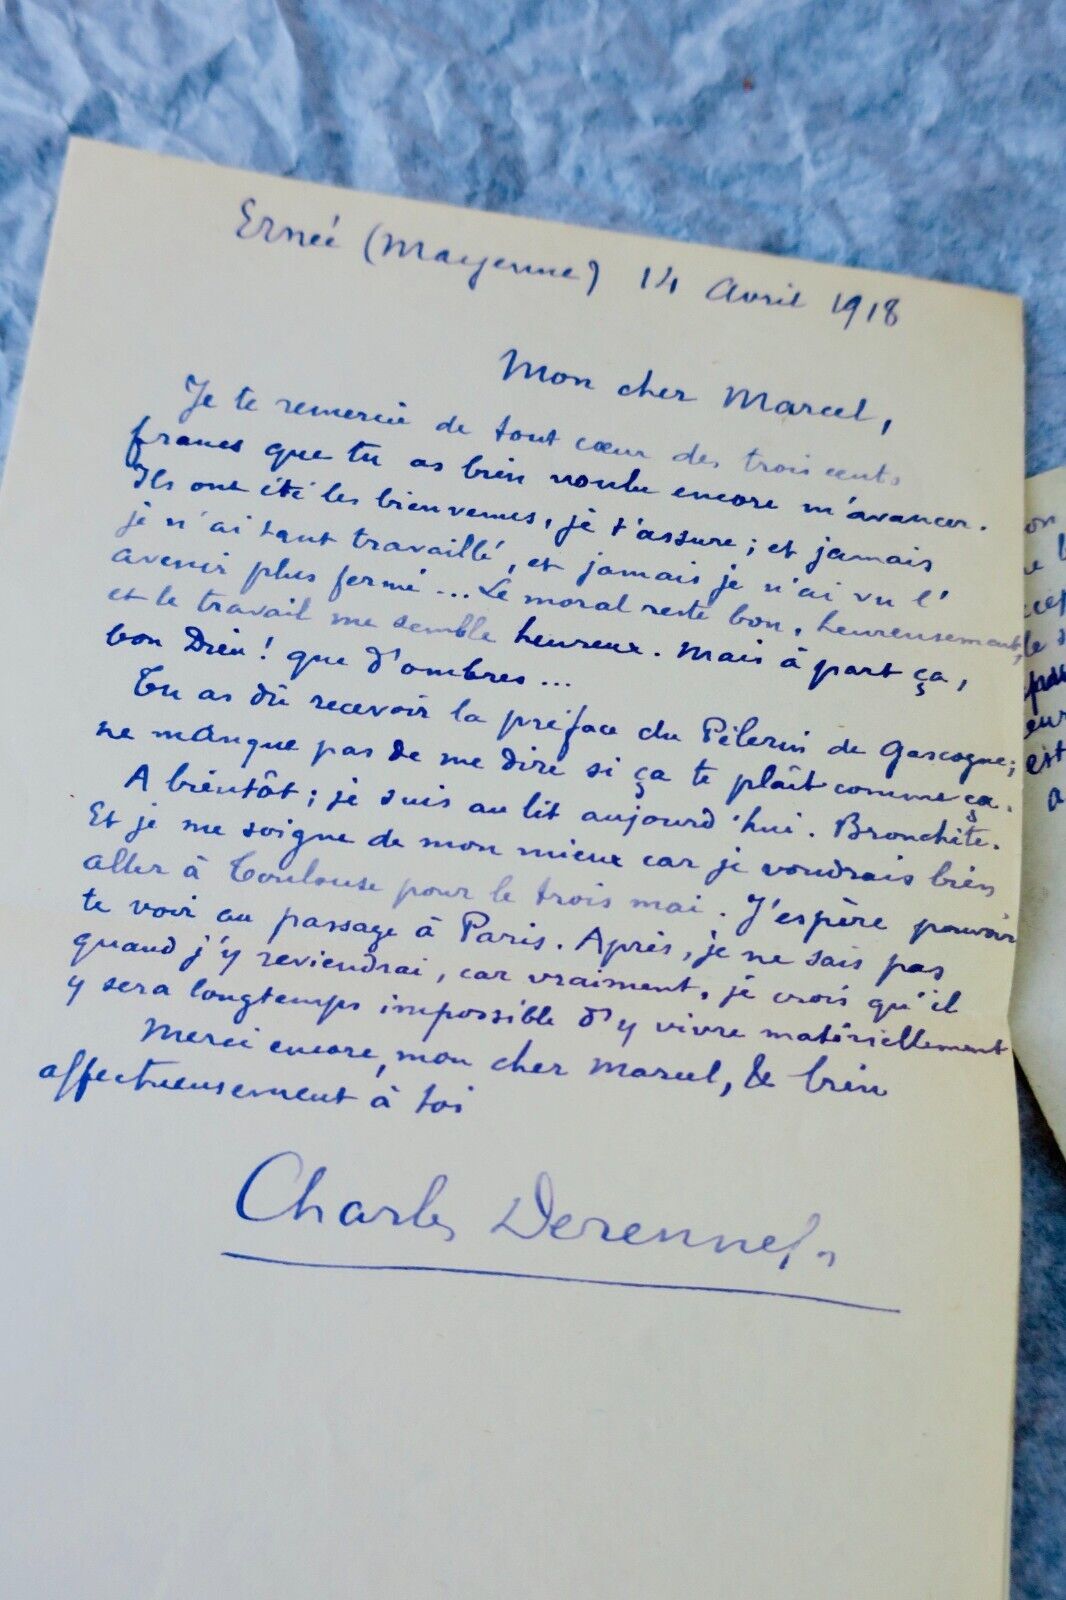 Ernée (Mayenne) 14 Avril 1918
Mon cher Marcel,
Je te remercie de tout cœur des trois cents
francs que tu as bien voulu encore m'avancer.
Ils ont été les bienvenus, je t'assure ; et jamais
je n'ai tant travaillé, et jamais je n'ai vu l'
avenir plus fermé... Le moral reste bon, heureusement,
et le travail me semble heureux. Mais à part ça,
bon Dieu ! que d'ombres...
Tu as dû recevoir la préface du Pèlerin de Gascogne ;
ne manque pas de me dire si ça te plaît comme ça.
A bientôt ; je suis au lit aujourd'hui. Bronchite.
Et je me soigne de mon mieux car je voudrais bien
aller à Toulouse pour le trois mai. J'espère pouvoir
te voir au passage à Paris. Après, je ne sais pas
quand j'y reviendrai, car vraiment, je crois qu'il
y sera longtemps impossible d'y vivre matériellement
Merci encore, mon cher Marcel, & bien
affectueusement à toi
Charles Derennes
on
est
a